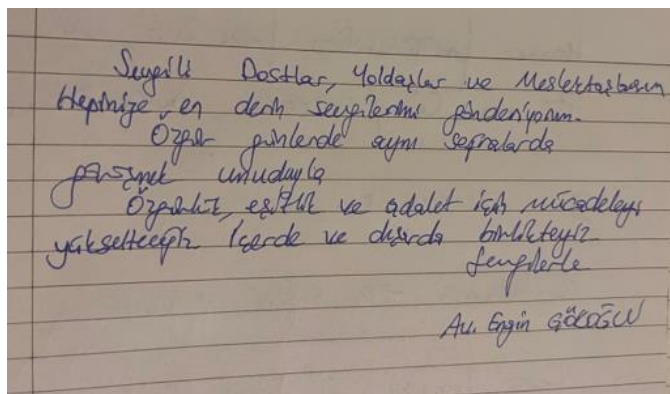 Sevgili Dostlar, Yoldaşlar ve Meslektaşlarım
Hepinize en derin sevgilerimi gönderiyorum.
Özgür günlerde aynı sofralarda
görüşmek umuduyla
Özgürlük, eşitlik ve adalet için mücadeleyi
yükselteceğiz İçerde ve dışarda birlikteyiz
Sevgilerle
Av. Engin GÖKOĞLU